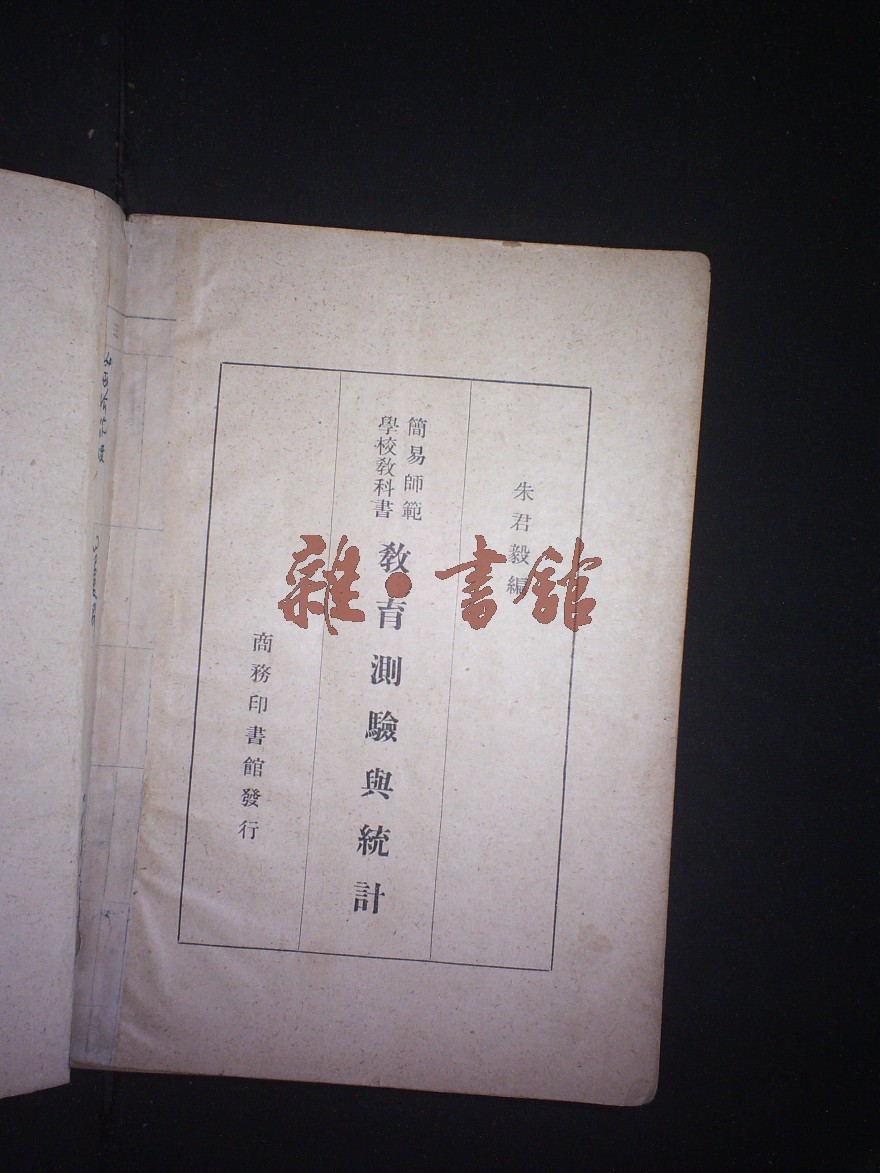 朱君毅編
簡易師範
學校教科書
教育測驗與統計
商務印書館發行
雜·書館